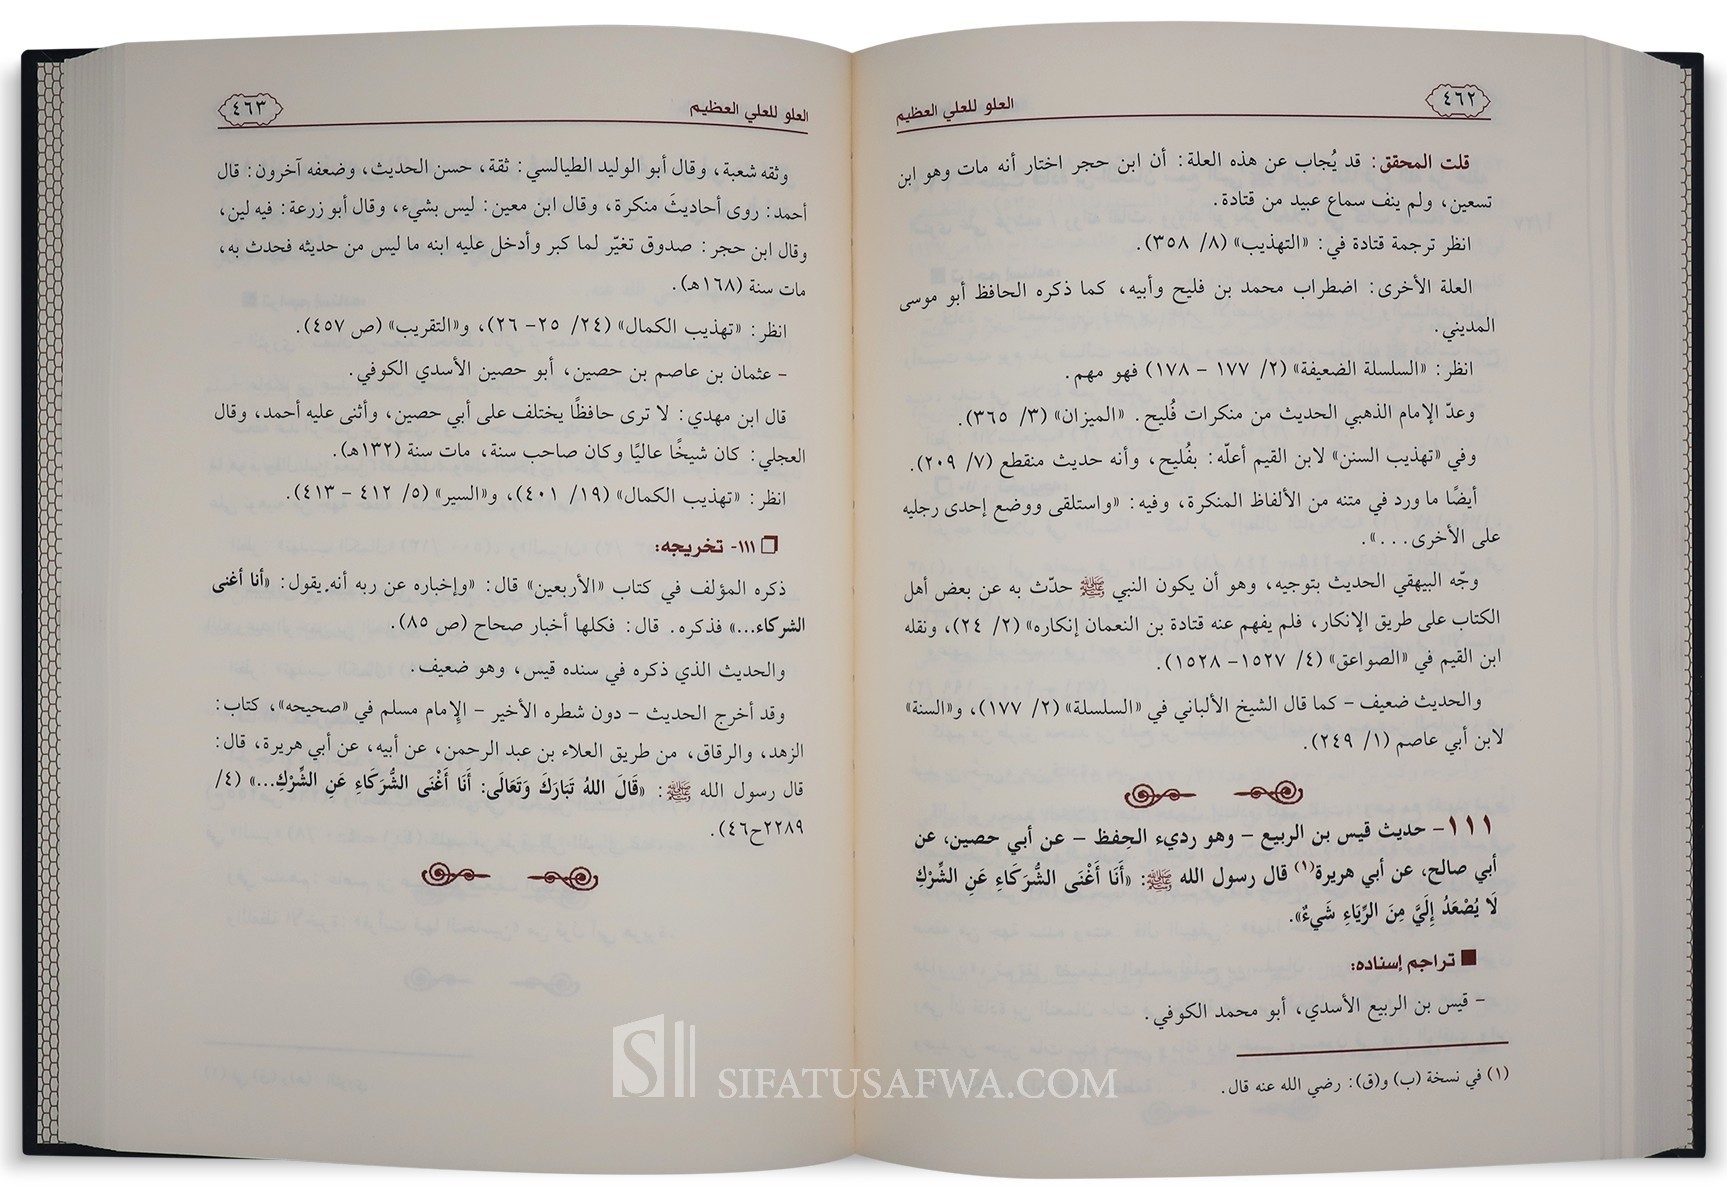 ٤٦٢
العلو للعلي العظيم
قلت المحقق: قد يُجاب عن هذه العلة: أن ابن حجر اختار أنه مات وهو ابن
تسعين، ولم ينف سماع عبيد من قتادة.
انظر ترجمة قتادة في: «التهذيب» (٨/ ٣٥٨).
العلة الأخرى: اضطراب محمد بن فليح وأبيه، كما ذكره الحافظ أبو موسى
المديني.
انظر: «السلسلة الضعيفة» (٢/ ١٧٧ – ١٧٨) فهو مهم.
وعدّ الإمام الذهبي الحديث من منكرات فُليح. «الميزان» (٣/ ٣٦٥).
وفي «تهذيب السنن» لابن القيم أعلّه: بفُليح، وأنه حديث منقطع (٧/ ٢٠٩).
أيضًا ما ورد في متنه من الألفاظ المنكرة، وفيه: «واستلقى ووضع إحدى رجليه
على الأخرى...».
وجّه البيهقي الحديث بتوجيه، وهو أن يكون النبي ﷺ حدّث به عن بعض أهل
الكتاب على طريق الإنكار، فلم يفهم عنه قتادة بن النعمان إنكاره» (٢/ ٢٤)، ونقله
ابن القيم في «الصواعق» (٤/ ١٥٢٧– ١٥٢٨).
والحديث ضعيف – كما قال الشيخ الألباني في «السلسلة» (٢/ ١٧٧)، و«السنة»
لابن أبي عاصم (١/ ٢٤٩).
١١١– حديث قيس بن الربيع – وهو رديء الحِفظ – عن أبي حصين، عن
أبي صالح، عن أبي هريرة(١) قال رسول الله ﷺ: «أَنَا أَغْنَى الشُّرَكَاءِ عَنِ الشِّرْكِ
لَا يُصْعَدُ إِلَيَّ مِنَ الرِّيَاءِ شَيءٌ».
■ تراجم إسناده:
– قيس بن الربيع الأسدي، أبو محمد الكوفي.
(١) في نسخة (ب) و(ق): رضي الله عنه قال.
العلو للعلي العظيم
٤٦٣
وثقه شعبة، وقال أبو الوليد الطيالسي: ثقة، حسن الحديث، وضعفه آخرون: قال
أحمد: روى أحاديثَ منكرة، وقال ابن معين: ليس بشيء، وقال أبو زرعة: فيه لين،
وقال ابن حجر: صدوق تغيّر لما كبر وأدخل عليه ابنه ما ليس من حديثه فحدث به،
مات سنة (١٦٨هـ).
انظر: «تهذيب الكمال» (٢٤/ ٢٥– ٢٦)، و«التقريب» (ص ٤٥٧).
– عثمان بن عاصم بن حصين، أبو حصين الأسدي الكوفي.
قال ابن مهدي: لا ترى حافظًا يختلف على أبي حصين، وأثنى عليه أحمد، وقال
العجلي: كان شيخًا عاليًا وكان صاحب سنة، مات سنة (١٣٢هـ).
انظر: «تهذيب الكمال» (١٩/ ٤٠١)، و«السير» (٥/ ٤١٢ – ٤١٣).
❒ ١١١- تخريجه:
ذكره المؤلف في كتاب «الأربعين» قال: «وإخباره عن ربه أنه يقول: «أنا أغنى
الشركاء...» فذكره. قال: فكلها أخبار صحاح (ص ٨٥).
والحديث الذي ذكره في سنده قيس، وهو ضعيف.
وقد أخرج الحديث – دون شطره الأخير – الإمام مسلم في «صحيحه»، كتاب:
الزهد، والرقاق، من طريق العلاء بن عبد الرحمن، عن أبيه، عن أبي هريرة، قال:
قال رسول الله ﷺ: «قَالَ اللهُ تَبَارَكَ وَتَعَالَى: أَنَا أَغْنَى الشُّرَكَاءِ عَنِ الشِّرْكِ...» (٤/
٢٢٨٩ح٤٦).
SIFATUSAFWA.COM